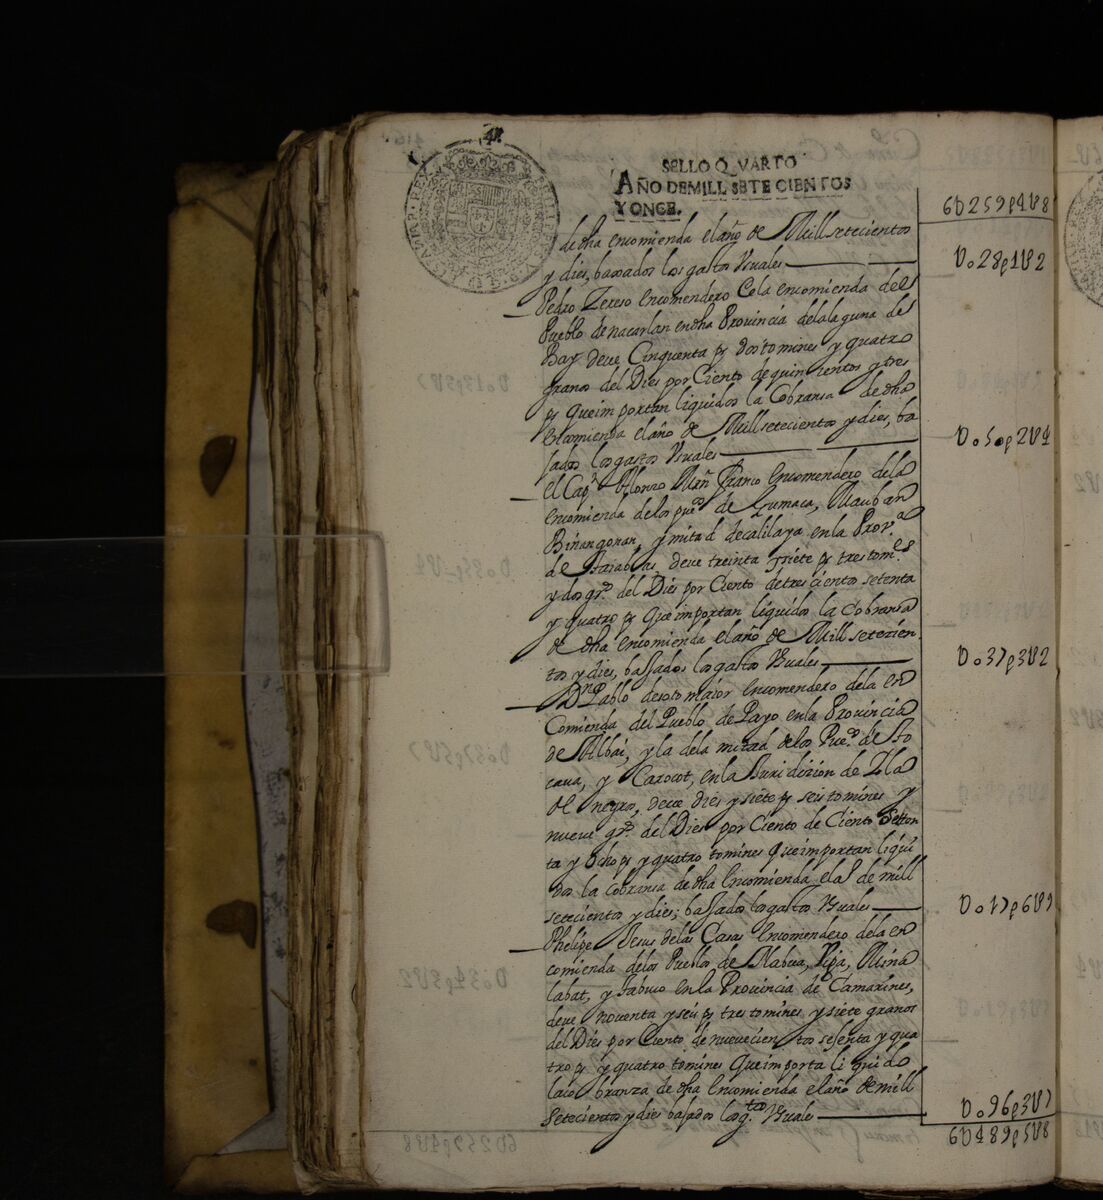 SELLO QVARTO
AÑO DE MILL SETE CIENTOS
Y ONCE.
6U259p4U8
de dha encomienda el año de Mill setecientos
y dies, baxados los gastos Vsuales
Uo28p1U2
Pedro Tereso encomendero de la encomienda del
Pueblo de nacarlan en dha Provincia de la laguna de
Bay deve Cinquenta ps dos tomines y quatro
granos del Dies por Ciento de quinientos y tres
ps que importan liquidos la Cobransa de dha
encomienda el año de Mill setecientos y dies, ba
jados los gastos Vsuales
Uo50p2U4
el Capn Alonso Mñ Franco encomendero de la
encomienda de los pueos de Gumaca, Mauban
Binangonan, y mitad de calilaya en la Prova
de Taiabas, deve treinta y siete ps tres toms
y dos gros del Dies por Ciento de tres cientos setenta
y quatro ps que importan liquidos la Cobransa
de dha encomienda el año de Mill setezien
tos y dies, bassados los gastos Vsuales
Uo37p3U2
Dn Pablo de soto maior encomendero de la en
Comienda del Pueblo de Payo en la Provincia
de Albai, y la de la mitad de los Pueos de
caua, y Carocot, en la Juridizion de Isla
de negros, deve dies y siete ps seis tomines y
nueve gros del Dies por Ciento de Ciento Setten
ta y Ocho ps y quatro tomines que importan liqui
dos la cobransa de dha encomienda el aº de mill
setecientos y dies, bassados los gastos Vsuales
Uo17p6U9
Phelipe Jesus de las Casas encomendero de la en
comienda de los Pueblos de Nabua, Riga, Mina
labat, y Tabuco en la Provincia de Camarines,
deve noventa y seis ps tres tomines y siete granos
del Dies por Ciento de nuevecientos sesenta y qua
tro ps y quatro tomines que importa liquido
la cobranza de dha encomienda el año de mill
setecientos y dies basados los gtos Vsuales
Uo96p3U7
6U489p5U8